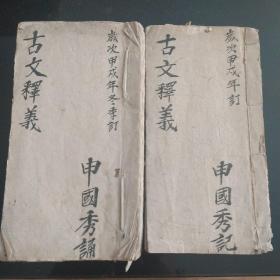 歲次甲戍年冬季訂
古文釋義
申國秀誦
歲次甲戍年訂
古文釋義
申國秀記